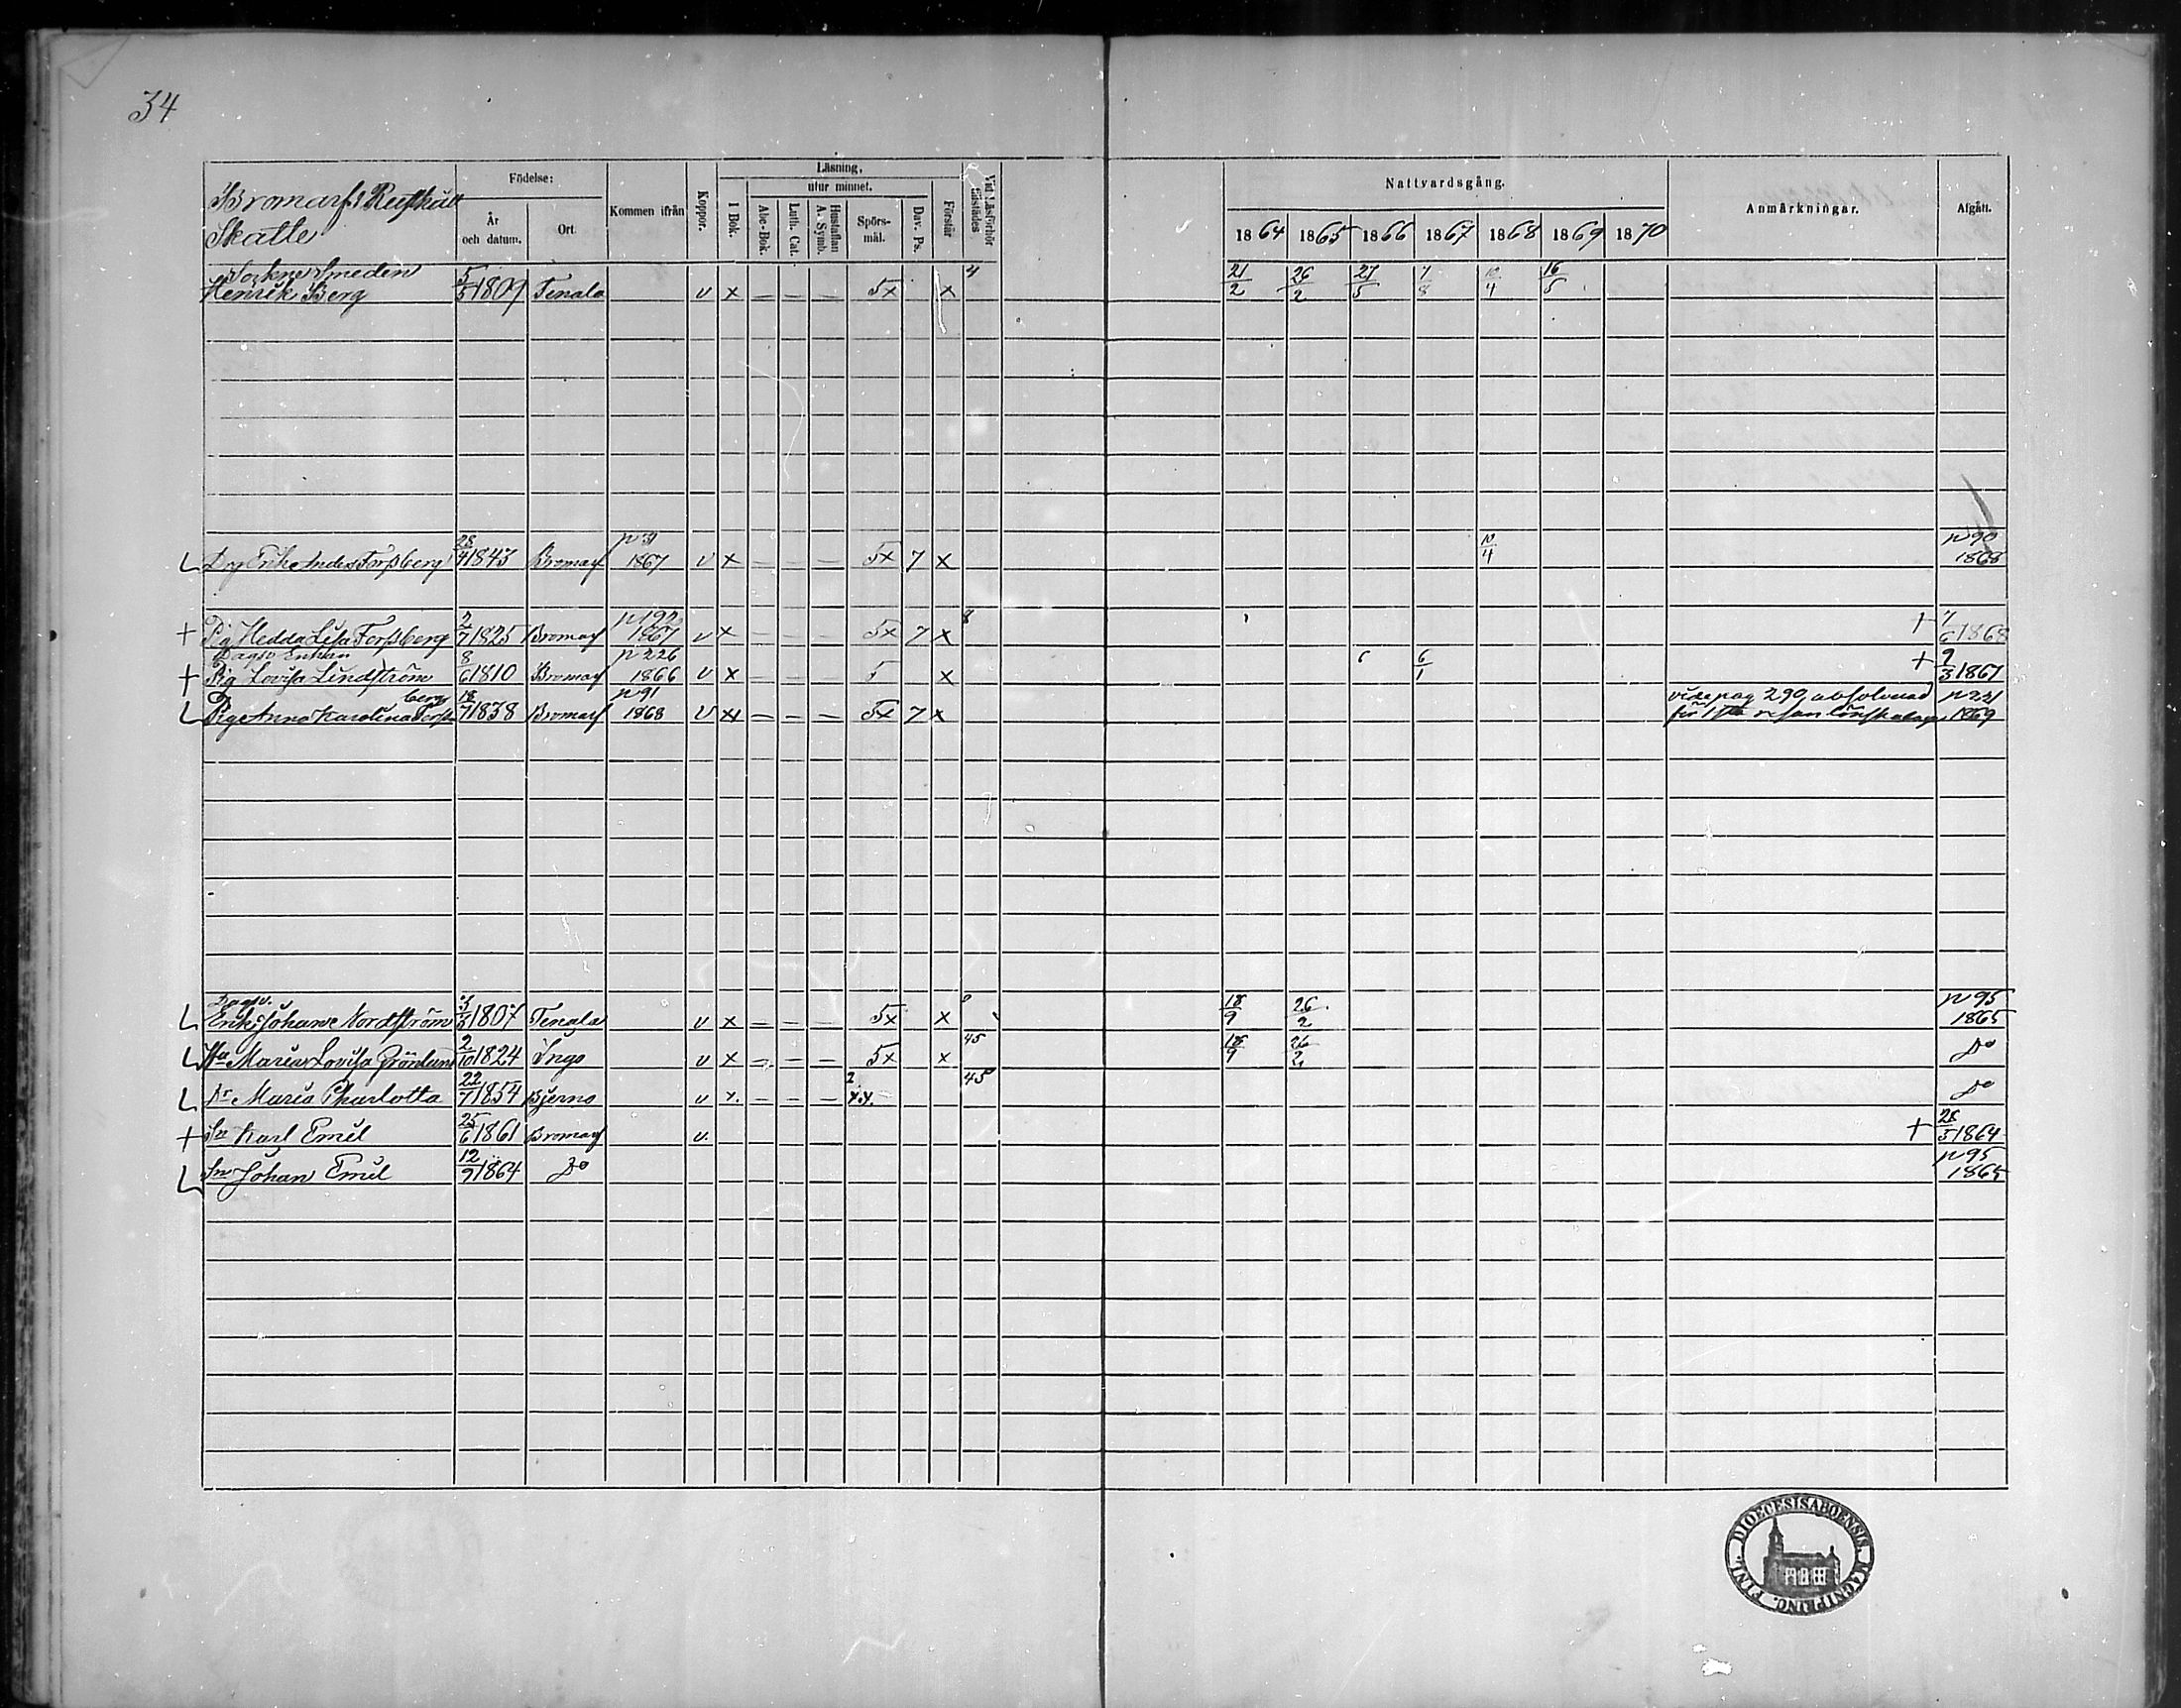 34
Bromarf Rusthåll
Skatte
Födelse:
År och datum.
Ort
Kommen ifrån
Koppor.
Läsning,
utur minnet.
I Bok.
Abc-Bok.
Luth. Cat.
Hustaflan A. Symb.
Spörs-mål.
Dav. Ps.
Förstår
Vid Läsförhör tillstädes
Nattvardsgång.
1864 1865 1866 1867 1868 1869 1870
Anmärkningar.
Afgått.
Sockne Smeden
Henrik Berg 5/5 1809 Tenala v x — — — 5x x 4 21/2 26/2 27/5 7/8 10/4 16/5
Drg Erik Anders Forsberg 28/4 1843 Bromarf p 31 1867 v x — — — 5x 7 x 10/4 p 90 1868
+ Pig Hedda Lisa Forsberg 2/7 1825 Bromarf p 192 1867 v x — — — 5x 7 x 8 + 7/6 1868
Dagsv Enkan
+ Pig Lovisa Lindström 8/6 1810 Bromarf p 226 1866 v x — — — 5 x 6 6/1 + 9/3 1867
Piga Anna Karolina Forsberg 18/7 1838 Bromarf p 91 1868 v x — — — 5x 7 x vide pag 290 absolverad för 1sta resan lönskaläge p 221 1869
Dagsv.
Erik Johan Nordström 3/5 1807 Tenala v x — — — 5x x 18/9 26/2 p 95 1865
Hu Maria Lovisa Grönlund 2/10 1824 Ingo v x — — — 5x x 45 18/9 26/2 Do
Dr Maria Charlotta 22/7 1854 Bjerno v x. — — — 2 x.x. 45 Do
+ Sn Karl Emil 25/6 1861 Bromarf v. + 28/5 1864
Sn Johan Emil 12/9 1864 Do p 95 1865
FINL. DIOECESIS ABOENSIS, MAGNI PRINC.